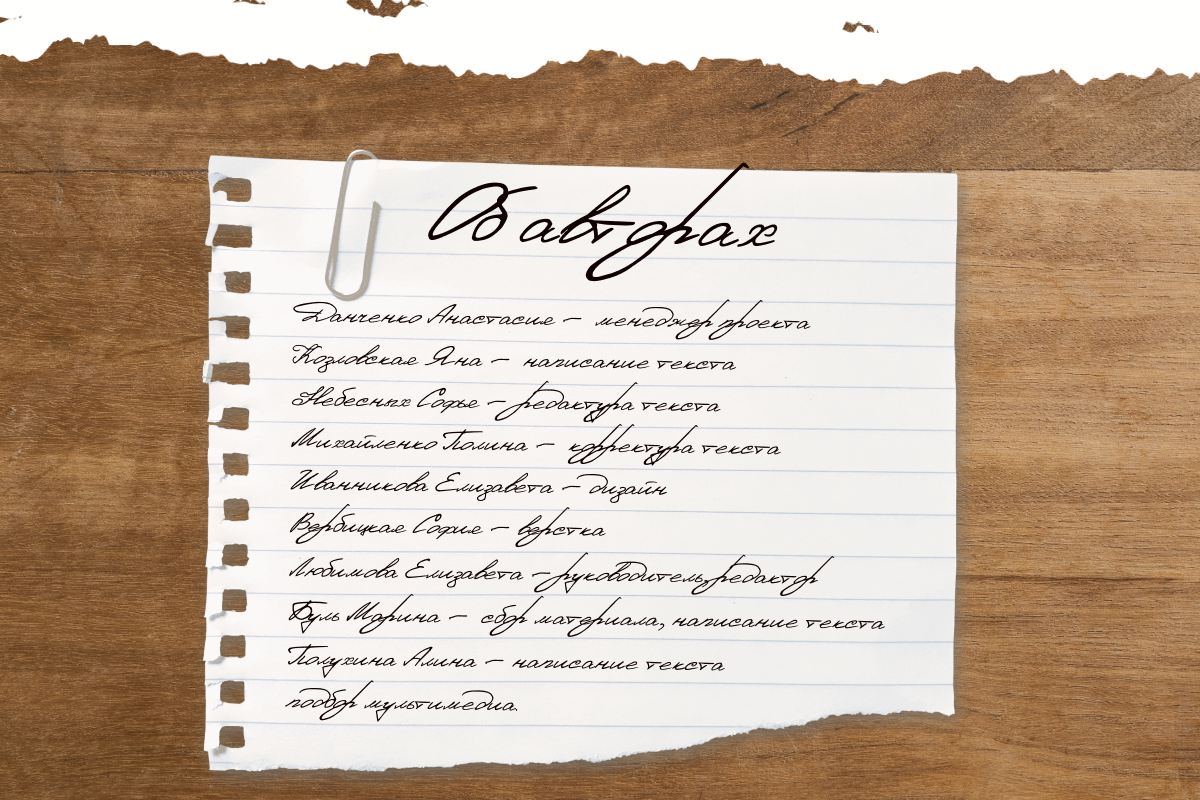 Об авторах
Данченко Анастасия – менеджер проекта
Козловская Яна – написание текста
Небесных Софья – редактура текста
Михайленко Полина – корректура текста
Иванникова Елизавета – дизайн
Вербицкая София – верстка
Любимова Елизавета – руководитель, редактор
Буль Марина – сбор материала, написание текста
Полухина Алина – написание текста
подбор мультимедиа.